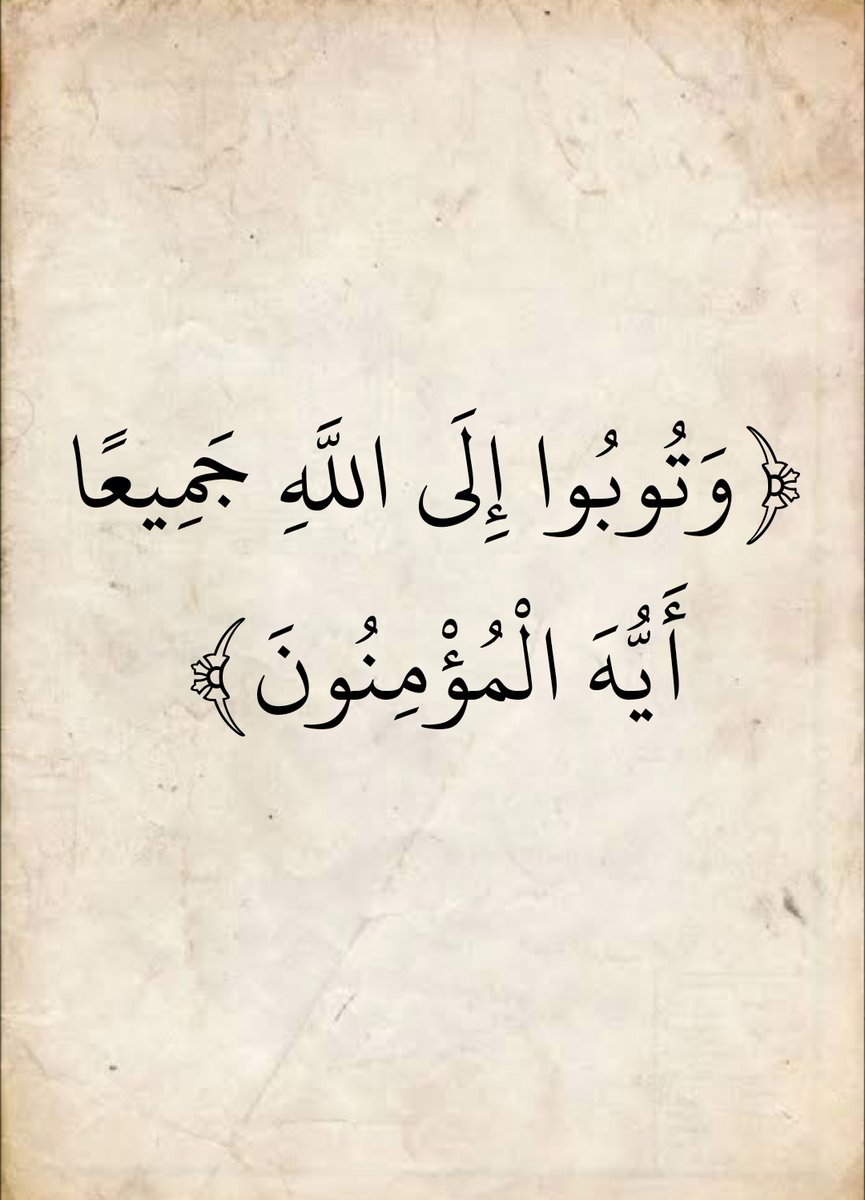 ﴿وَتُوبُوا إِلَى اللَّهِ جَمِيعًا
أَيُّهَ الْمُؤْمِنُونَ﴾